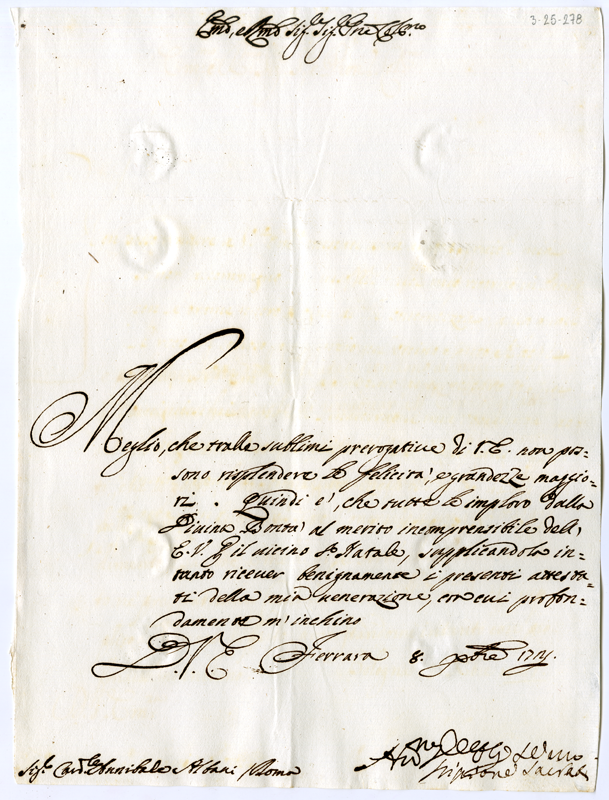 3-25-278
Emo, e Rmo Sig.r Sig.r Pne Col.mo
Meglio, che tralle sublimi prerogative di V.E. non pos=
sono risplendere le felicità, e grandezze maggio=
ri. Quindi è, che tutte le imploro dalla
Divina Bontà al merito incomprensibile dell'
E.V. p il vicino S. Natale, supplicandola in=
tanto ricever benignamente i presenti attesta=
ti della mia venerazione, con cui profon=
damente m'inchino
D.V.E. Ferrara 8. Xbre
Sig.r Card.le Annibale Albani Roma
Scipione Sacrati